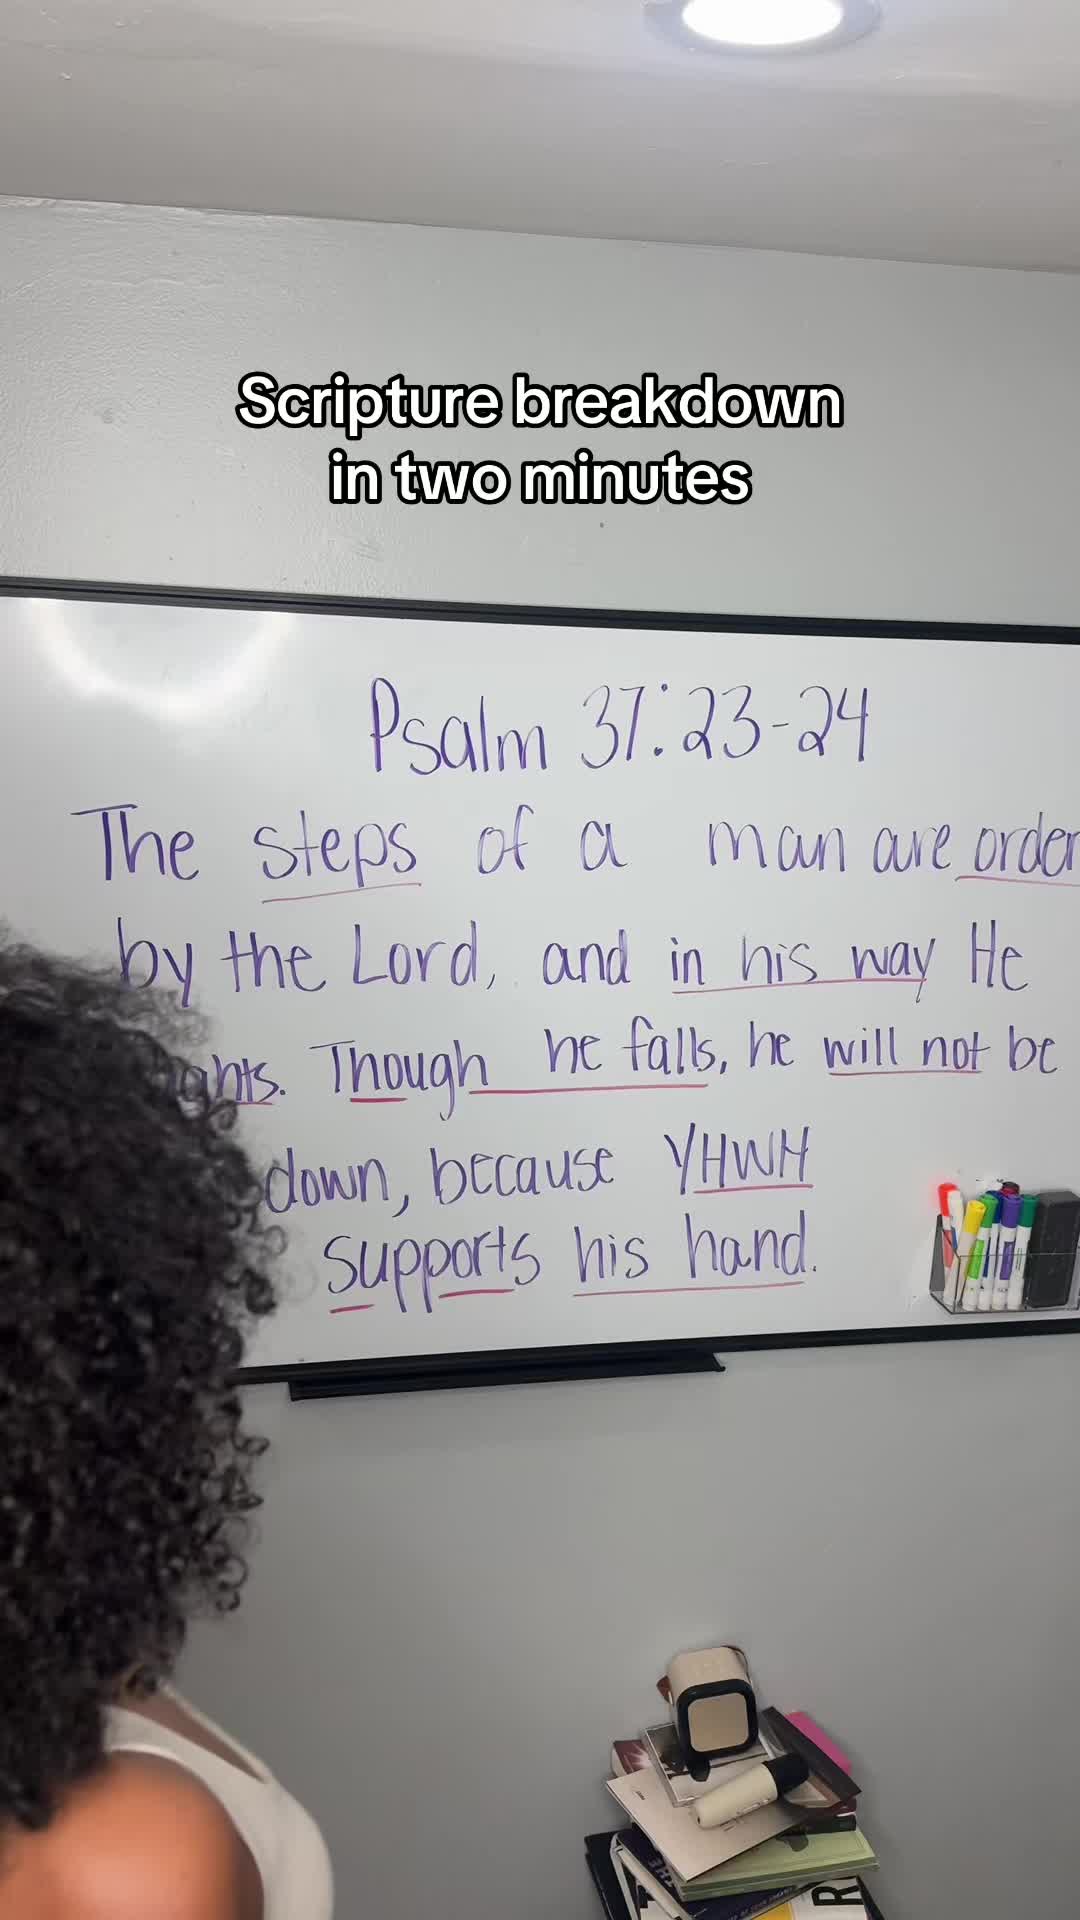 Scripture breakdown
in two minutes
Psalm 37:23-24
The steps of a man are order
by the Lord, and in his way He
ghts. Though he falls, he will not be
down, because YHWH
supports his hand.
THE
R